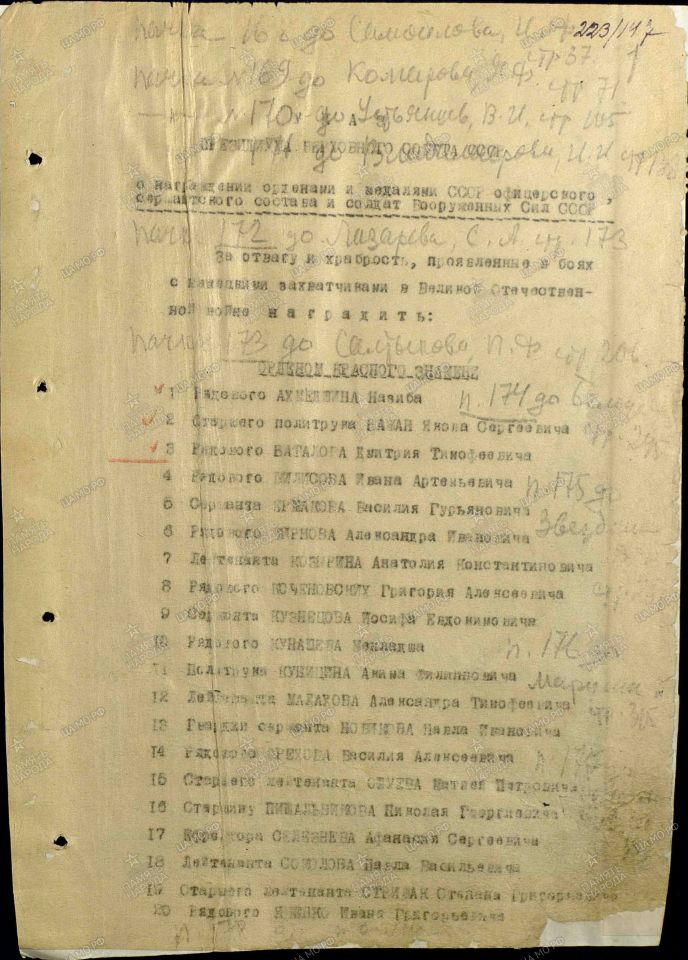 пачка 168 до Самойлова, И.Ф. стр 37
223/147
пачка №169 до Комарова Ф. стр 71
—"— №170 до Устьянцев, В.И. стр 105
УКАЗ
ПРЕЗИДИУМА ВЕРХОВНОГО СОВЕТА СССР
171 до И.И
о награждении орденами и медалями СССР офицерского,
сержантского состава и солдат Вооруженных Сил СССР
пачка 172 до Лазарева, С.А стр. 173
За отвагу и храбрость, проявленные в боях
с немецкими захватчиками в Великой Отечествен-
ной войне наградить:
пачка 173 до Салтыкова, П.Ф стр 206
ОРДЕНОМ КРАСНОГО ЗНАМЕНИ
1 Рядового АХМЕТШИНА Навиба
п. 174 до
2 Старшего политрука БАЖАН Якова Сергеевича
3 Рядового БАТАЛОВА Дмитрия Тимофеевича
4 Рядового Ивана Артемьевича
п. 175 до
5 Сержанта ЕРМАКОВА Василия Гурьяновича
6 Рядового Александра Ивановича
7 Лейтенанта КОЗЫРИНА Анатолия Константиновича
8 Рядового КОЧЕНОВСКИХ Григория Алексеевича
9 Сержанта КУЗНЕЦОВА Иосифа Евдокимовича
10 Рядового КУНАШЕВА
п. 176
11 Политрука КУНИЦИНА Филипповича
12 Лейтенанта МАЛАХОВА Александра Тимофеевича
13 Гвардии сержанта НОВИКОВА Павла Ивановича
14 Рядового ОРЕХОВА Василия Алексеевича
п. 177
15 Старшего лейтенанта ОБУЕВА Матвея Петровича
16 Старшину ПИЩАЛЬНИКОВА Николая Георгиевича
17 Ефрейтора СЕЛЕЗНЕВА Афанасия Сергеевича
18 Лейтенанта СОКОЛОВА Павла Васильевича
19 Старшего лейтенанта СТРИЖАК Степана Григорьевича
20 Рядового Ивана Григорьевича